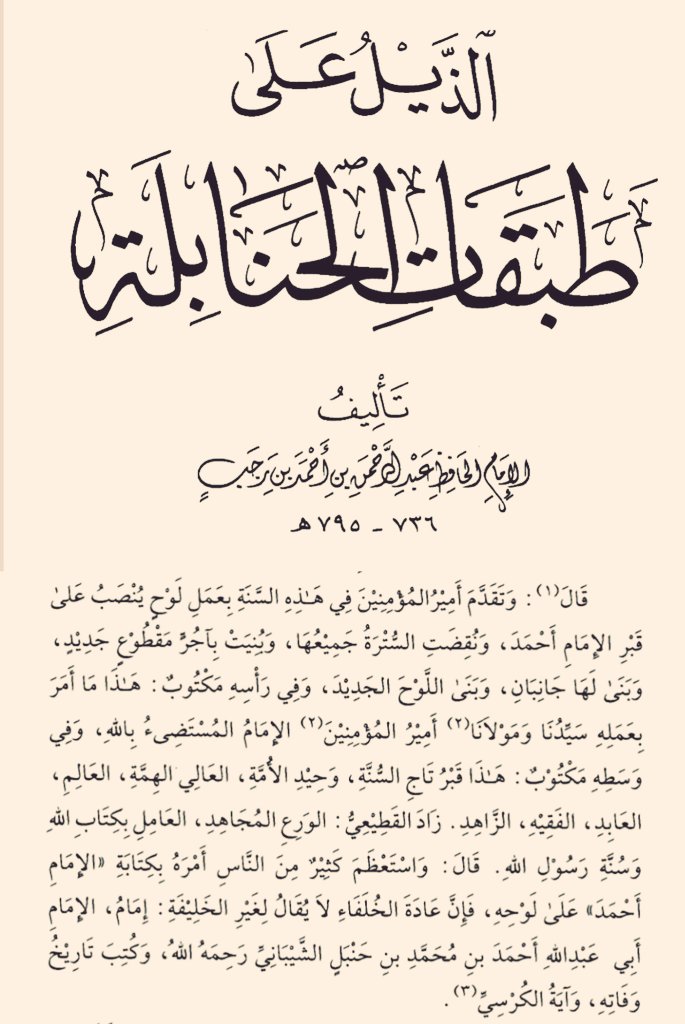 الذَّيْلُ عَلَىٰ
طَبَقَاتِ الحَنَابِلَةِ
تَأْلِيفُ
الإِمَامِ الحَافِظِ عَبْدِ الرَّحْمَنِ بنِ أَحْمَدَ بنِ رَجَبٍ
٧٣٦ - ٧٩٥ هـ
قَالَ(١): وَتَقَدَّمَ أَمِيْرُ المُؤْمِنِيْنَ فِي هَـٰذِهِ السَّنَةِ بِعَمَلِ لَوْحٍ يُنْصَبُ عَلَىٰ
قَبْرِ الإِمَامِ أَحْمَدَ، وَنُقِضَتِ السُّتْرَةُ جَمِيْعُهَا، وَبُنِيَتْ بِآجُرٍّ مَقْطُوْعٍ جَدِيْدٍ،
وَبَنَىٰ لَهَا جَانِبَانِ، وَبَنَىٰ اللَّوْحَ الجَدِيْدَ، وَفِي رَأْسِهِ مَكْتُوبٌ: هَـٰذَا مَا أَمَرَ
بِعَمَلِهِ سَيِّدُنَا وَمَوْلَانَا(٢) أَمِيْرُ المُؤْمِنِيْنَ(٢) الإِمَامُ المُسْتَضِيءُ بِاللهِ، وَفِي
وَسَطِهِ مَكْتُوْبٌ: هَـٰذَا قَبْرُ تَاجِ السُّنَّةِ، وَحِيْدِ الأُمَّةِ، العَالِي الهِمَّةِ، العَالِمِ،
العَابِدِ، الفَقِيْهِ، الزَّاهِدِ. زَادَ القَطِيْعِيُّ: الوَرِعِ المُجَاهِدِ، العَامِلِ بِكِتَابِ اللهِ
وَسُنَّةِ رَسُوْلِ اللهِ. قَالَ: وَاسْتَعْظَمَ كَثِيْرٌ مِنَ النَّاسِ أَمْرَهُ بِكِتَابَةِ «الإِمَامِ
أَحْمَدَ» عَلَىٰ لَوْحِهِ، فَإِنَّ عَادَةَ الخُلَفَاءِ لاَ يُقَالُ لِغَيْرِ الخَلِيْفَةِ: إِمَامُ، الإِمَامِ
أَبِي عَبْدِاللهِ أَحْمَدَ بنِ مُحَمَّدِ بنِ حَنْبَلٍ الشَّيْبَانِيِّ رَحِمَهُ اللهُ، وَكُتِبَ تَارِيْخُ
وَفَاتِهِ، وَآيَةُ الكُرْسِيِّ(٣).